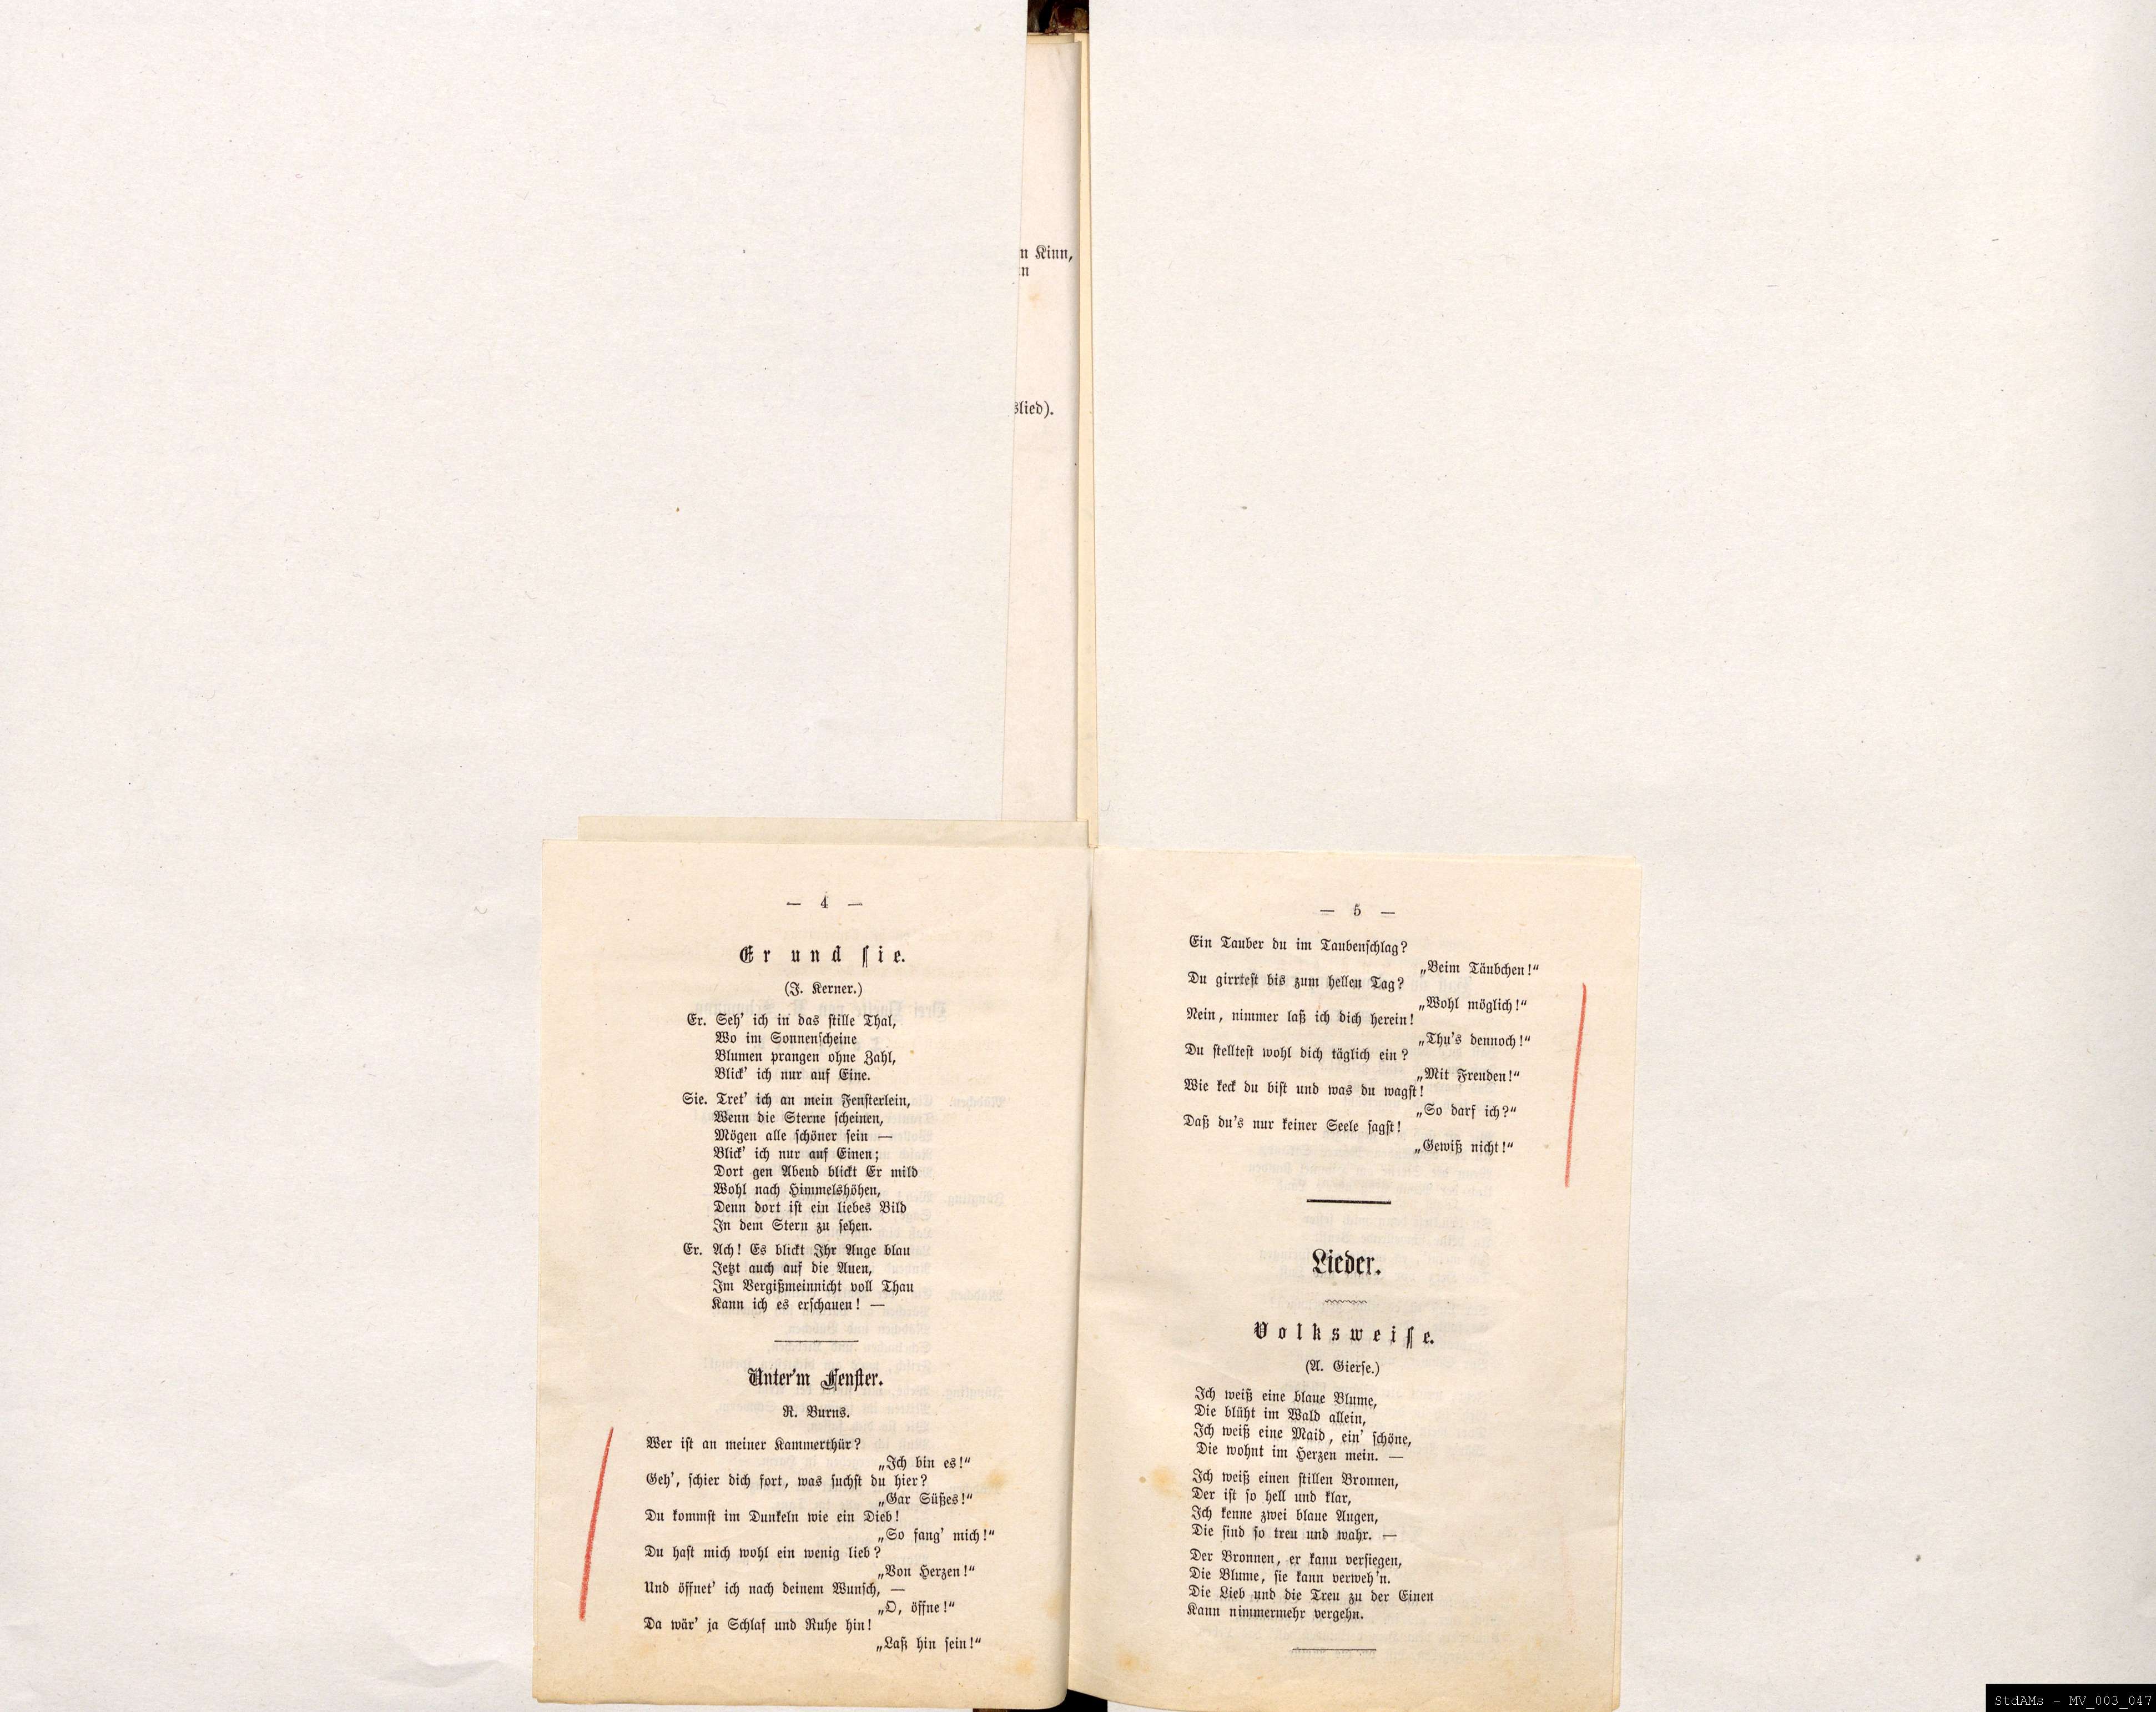 n Kinn,
n
slied).
— 4 —
Er und sie.
(J. Kerner.)
Er. Seh' ich in das stille Thal,
Wo im Sonnenscheine
Blumen prangen ohne Zahl,
Blick' ich nur auf Eine.
Sie. Tret' ich an mein Fensterlein,
Wenn die Sterne scheinen,
Mögen alle schöner sein —
Blick' ich nur auf Einen;
Dort gen Abend blickt Er mild
Wohl nach Himmelshöhen,
Denn dort ist ein liebes Bild
In dem Stern zu sehen.
Er. Ach! Es blickt Ihr Auge blau
Jetzt auch auf die Auen,
Im Vergißmeinnicht voll Thau
Kann ich es erschauen! —
Unter'm Fenster.
R. Burns.
Wer ist an meiner Kammerthür?
„Ich bin es!“
Geh', schier dich fort, was suchst du hier?
„Gar Süßes!“
Du kommst im Dunkeln wie ein Dieb!
„So fang' mich!“
Du hast mich wohl ein wenig lieb?
„Von Herzen!“
Und öffnet' ich nach deinem Wunsch, —
„O, öffne!“
Da wär' ja Schlaf und Ruhe hin!
„Laß hin sein!“
— 5 —
Ein Tauber du im Taubenschlag?
„Beim Täubchen!“
Du girrtest bis zum hellen Tag?
„Wohl möglich!“
Nein, nimmer laß ich dich herein!
„Thu's dennoch!“
Du stelltest wohl dich täglich ein?
„Mit Freuden!“
Wie keck du bist und was du wagst!
„So darf ich?“
Daß du's nur keiner Seele sagst!
„Gewiß nicht!“
Lieder.
Volksweise.
(A. Gierse.)
Ich weiß eine blaue Blume,
Die blüht im Wald allein,
Ich weiß eine Maid, ein' schöne,
Die wohnt im Herzen mein. —
Ich weiß einen stillen Bronnen,
Der ist so hell und klar,
Ich kenne zwei blaue Augen,
Die sind so treu und wahr. —
Der Bronnen, er kann versiegen,
Die Blume, sie kann verweh'n.
Die Lieb und die Treu zu der Einen
Kann nimmermehr vergehn.
StdAMs - MV_003_047